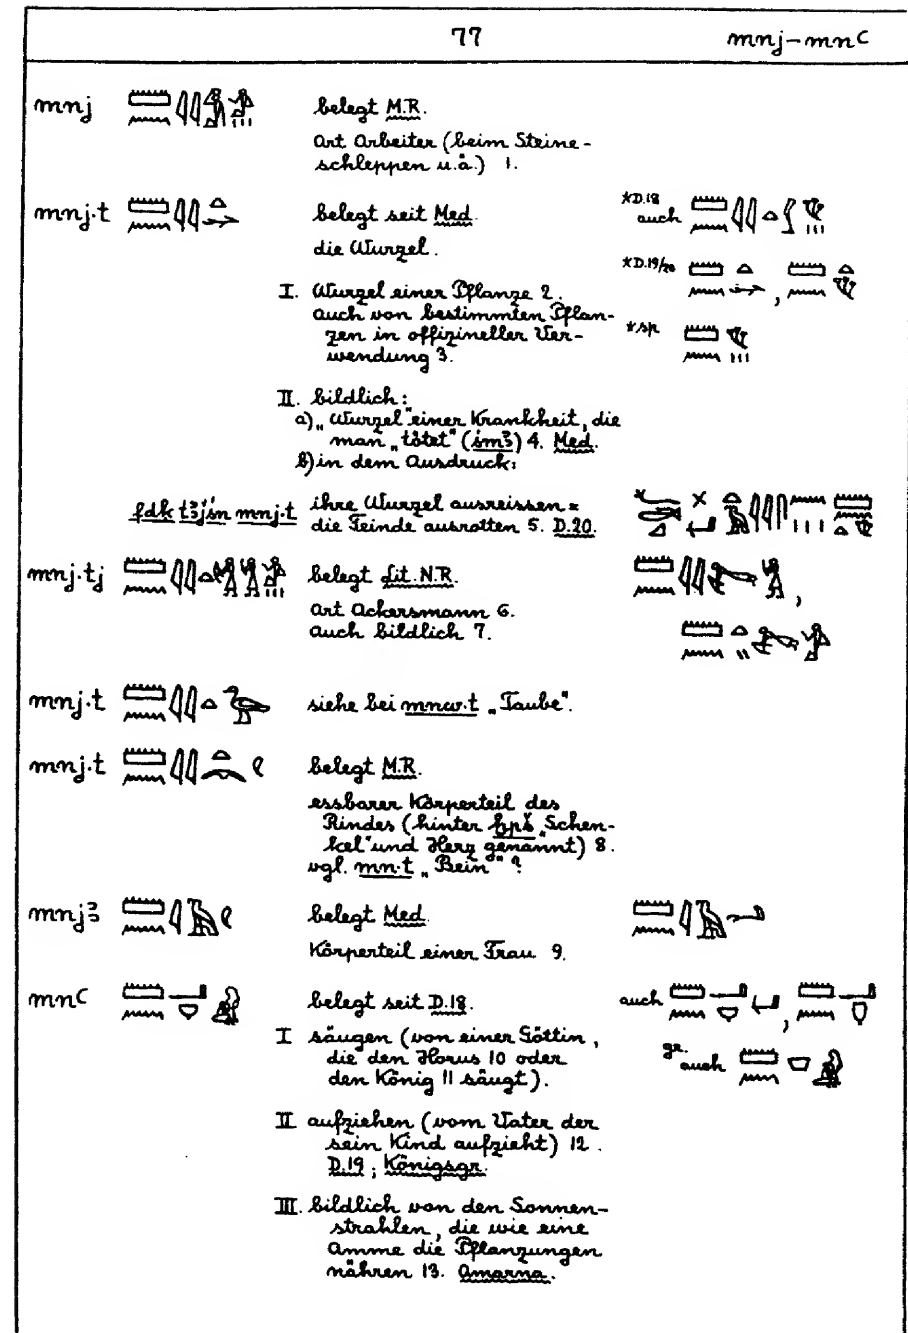 77 mnj–mnꜥ
mnj 𓏠𓈖𓇋𓇋 belegt M.R.
Art Arbeiter (beim Steine-
schleppen u.ä.) 1.
mnj·t 𓏠𓈖𓇋𓇋𓏏 belegt seit Med. *D.18 auch 𓏠𓈖𓇋𓇋𓏏
die Wurzel.
*D.19/20 𓏠𓈖𓏏 , 𓏠𓈖𓏏
I. Wurzel einer Pflanze 2.
auch von bestimmten Pflan-
zen in offizineller Ver- *sp 𓏠𓈖
wendung 3.
II. bildlich:
a) „Wurzel“ einer Krankheit, die
man „tötet“ (śmꜣ) 4. Med.
b) in dem Ausdruck:
fdḳ tꜣj·śn mnj·t ihre Wurzel ausreissen =
die Feinde ausrotten 5. D.20.
mnj·tj 𓏠𓈖𓇋𓇋𓏏 belegt Lit. N.R. 𓏠𓈖𓇋𓇋 ,
Art Ackersmann 6.
auch bildlich 7. 𓏠𓈖𓏏𓏭
mnj·t 𓏠𓈖𓇋𓇋𓏏𓅬 siehe bei mnw·t „Taube“.
mnj·t 𓏠𓈖𓇋𓇋𓏏 belegt M.R.
essbarer Körperteil des
Rindes (hinter ḫpš „Schen-
kel“ und Herz genannt) 8.
vgl. mn·t „Bein“ ?
mnjꜣ 𓏠𓈖𓇋𓄿 belegt Med. 𓏠𓈖𓇋𓄿
Körperteil einer Frau 9.
mnꜥ 𓏠𓈖𓂝 belegt seit D.18. auch 𓏠𓈖𓂝 , 𓏠𓈖𓂝
I säugen (von einer Göttin, gr. auch 𓏠𓈖
die den Horus 10 oder
den König 11 säugt).
II aufziehen (vom Vater der
sein Kind aufzieht) 12.
D.19; Königsgr.
III. bildlich von den Sonnen-
strahlen, die wie eine
Amme die Pflanzungen
nähren 13. Amarna.